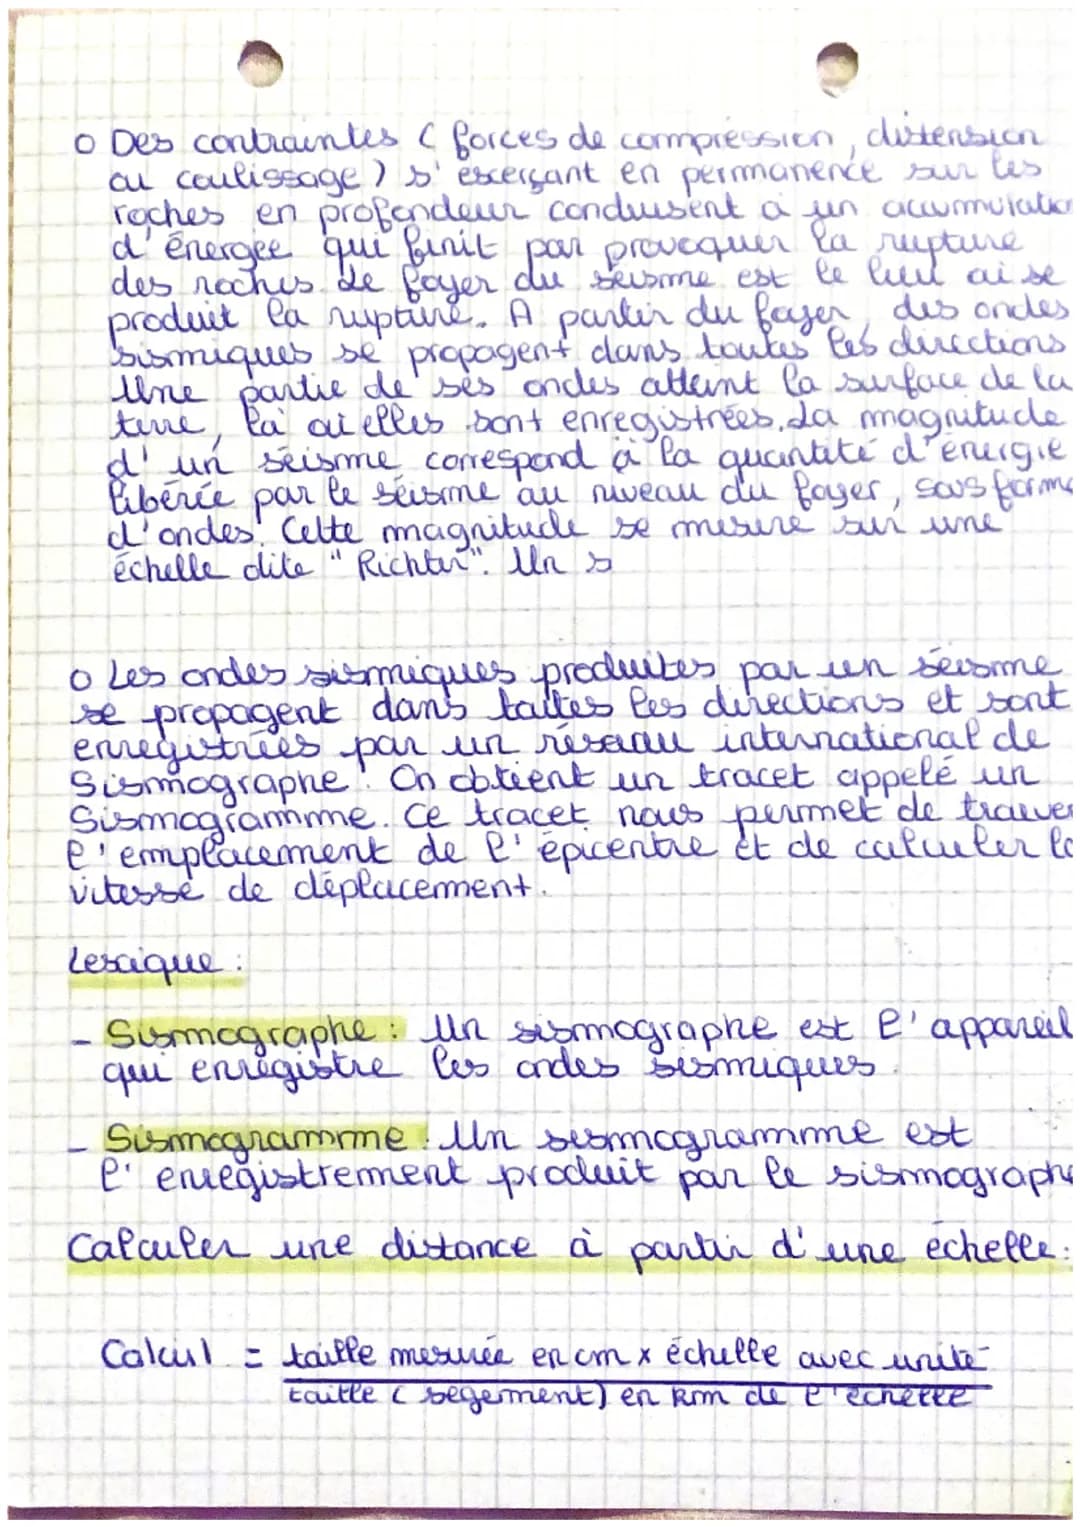 o Des contraintes ( forces de compréssion, distension
ou coulissage ) s' exerçant en permanence sur les
roches en profondeur conduisent à un accumulation
d'énergie qui finit par provoquer la rupture
des roches. Le foyer du séisme est le lieu où se
produit la rupture. A partir du foyer, des ondes
sismiques se propagent dans toutes les directions
Une partie de ses ondes atteint la surface de la
terre, là où elles sont enregistrées. La magnitude
d' un séisme correspond à la quantité d'énergie
libérée par le séisme au niveau du foyer, sous forme
d'ondes. Cette magnitude se mesure sur une
échelle dite "Richter". Un s
o Les ondes sismiques produites par un séisme
se propagent dans toutes les directions et sont
enregistrées par un réseau international de
Sismographe. On obtient un tracet appelé un
Sismogramme. Ce tracet nous permet de trouver
l'emplacement de l'épicentre et de calculer la
vitesse de déplacement.
Lexique :
- Sismographe : Un sismographe est l'appareil
qui enregistre les ondes sismiques.
- Sismogramme : Un sismogramme est
l'enregistrement produit par le sismographe
Calculer une distance à partir d'une échelle :
Calcul = taille mesurée en cm x échelle avec unité
taille ( segement) en km de l'échelle